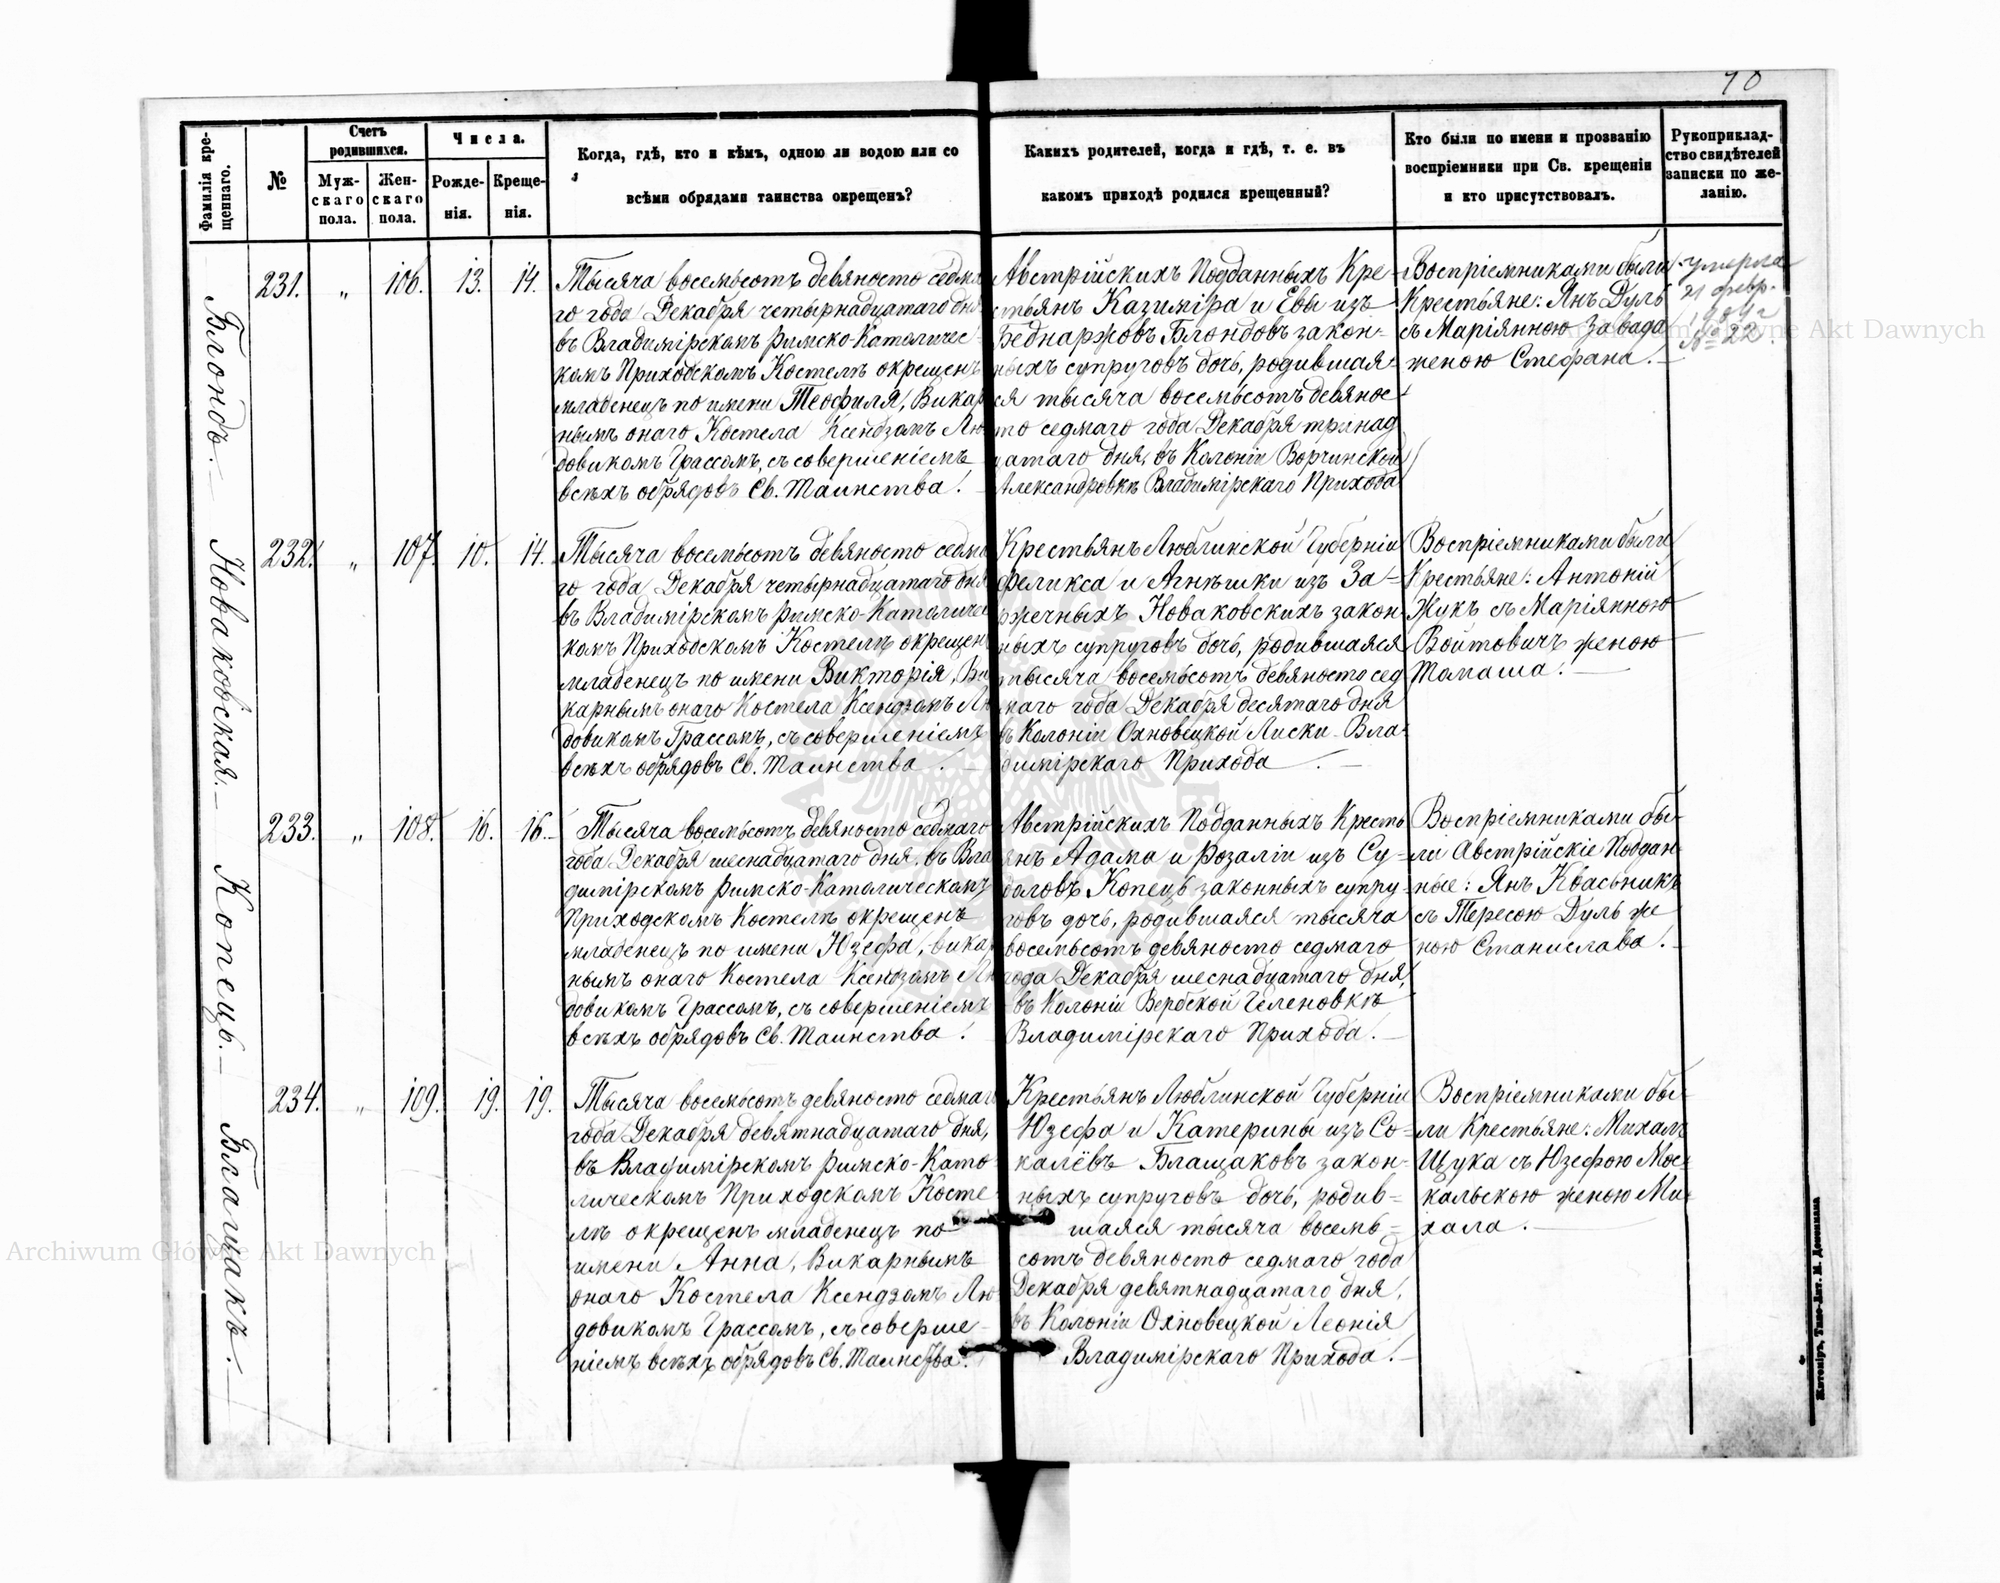 70
Фамилія кре-
щеннаго.
№
Счетъ
родившихся.
Муж-
скаго
пола.
Жен-
скаго
пола.
Числа.
Рожде-
нія.
Креще-
нія.
Когда, гдѣ, кто и кѣмъ, одною ли водою или со
всѣми обрядами таинства окрещенъ?
Какихъ родителей, когда и гдѣ, т. е. въ
какомъ приходѣ родился крещенный?
Кто были по имени и прозванію
воспріемники при Св. крещеніи
и кто присутствовалъ.
Рукоприклад-
ство свидѣтелей
записки по же-
ланію.
Блондъ.
231. " 106. 13. 14.
Тысяча восемьсотъ девяносто седма
го года Декабря четырнадцатаго дня
въ Владимірскомъ Римско-Католичес-
комъ Приходскомъ Костелѣ окрещенъ
младенецъ по имени Теофиля, Викар
нымъ онаго Костела Ксендзомъ Лю
довикомъ Грассомъ, съ совершеніемъ
всѣхъ обрядовъ Св. Таинства.
Австрійскихъ Подданныхъ Кре-
стьянъ Казиміра и Евы изъ
Беднаржовъ Блондовъ закон-
ныхъ супруговъ дочь, родившая-
ся тысяча восемьсотъ девянос-
то седмаго года Декабря тринад
цатаго дня, въ Колоніи Ворчинской
Александровкѣ Владимірскаго Прихода
Воспріемниками были
Крестьяне: Янъ Дуль
съ Маріянною Завада
женою Стефана.
умерла
21 февр.
№ 22.
Новаковская.
232. " 107. 10. 14.
Тысяча восемьсотъ девяносто седма
го года Декабря четырнадцатаго дня
въ Владимірскомъ Римско-Католичес
комъ Приходскомъ Костелѣ окрещенъ
младенецъ по имени Викторія, Ви
карнымъ онаго Костела Ксендзомъ Лю
довикомъ Грассомъ, съ совершеніемъ
всѣхъ обрядовъ Св. Таинства.
Крестьянъ Люблинской Губерніи
Феликса и Агнѣшки изъ За-
ржечныхъ Новаковскихъ закон-
ныхъ супруговъ дочь, родившаяся
тысяча восемьсотъ девяносто сед
маго года Декабря десятаго дня
въ Колоніи Охновецкой Лиски Вла-
димірскаго Прихода.
Воспріемниками были
Крестьяне: Антоній
Жукъ съ Маріянною
Войтовичъ женою
Томаша.
Копецъ.
233. " 108. 16. 16.
Тысяча восемьсотъ девяносто седмаго
года Декабря шеснадцатаго дня, въ Вла
димірскомъ Римско-Католическомъ
Приходскомъ Костелѣ окрещенъ
младенецъ по имени Юзефа, Викар
нымъ онаго Костела Ксендзомъ Лю
довикомъ Грассомъ, съ совершеніемъ
всѣхъ обрядовъ Св. Таинства.
Австрійскихъ Подданныхъ Кресть
янъ Адама и Розаліи изъ Су-
доловъ Копецъ законныхъ супру-
говъ дочь, родившаяся тысяча
восемьсотъ девяносто седмаго
года Декабря шеснадцатаго дня,
въ Колоніи Вербской Геленовкѣ
Владимірскаго Прихода.
Воспріемниками бы-
ли Австрійскіе Поддан-
ные: Янъ Квасьникъ
съ Тересою Дуль же
ною Станислава.
Блащакъ.
234. " 109. 19. 19.
Тысяча восемьсотъ девяносто седмаго
года Декабря девятнадцатаго дня,
въ Владимірскомъ Римско-Като-
лическомъ Приходскомъ Косте-
лѣ окрещенъ младенецъ по
имени Анна, Викарнымъ
онаго Костела Ксендзомъ Лю
довикомъ Грассомъ, съ соверше-
ніемъ всѣхъ обрядовъ Св. Таинства.
Крестьянъ Люблинской Губерніи
Юзефа и Катерины изъ Со-
калёвъ Блащаковъ закон-
ныхъ супруговъ дочь, родив-
шаяся тысяча восемь-
сотъ девяносто седмаго года
Декабря девятнадцатаго дня,
въ Колоніи Охновецкой Леонія
Владимірскаго Прихода.
Воспріемниками бы-
ли Крестьяне: Михалъ
Щука съ Юзефою Мос-
кальскою женою Ми-
хала.
Житоміръ, Типо-Лит. М. Дененмана
Archiwum Główne Akt Dawnych
Główne Akt Dawnych